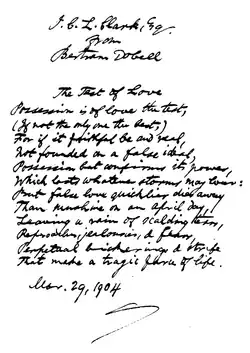 J. C. L. Clark, Esq
From
Bertram Dobell
The Test of Love
Possession is of love the test,
(If not the only one the best;)
For if it faithful be and real,
Not founded on a false ideal,
Possession but confirms its power,
Which lasts whatever storms may lour:
But false love quickly dies away
Than sunshine on an April day,
Leaving a rain of scalding tears,
Reproaches, jealousies, & fears,
Perpetual bickerings & strife
That make a tragic farce of life.
Mar. 29, 1904